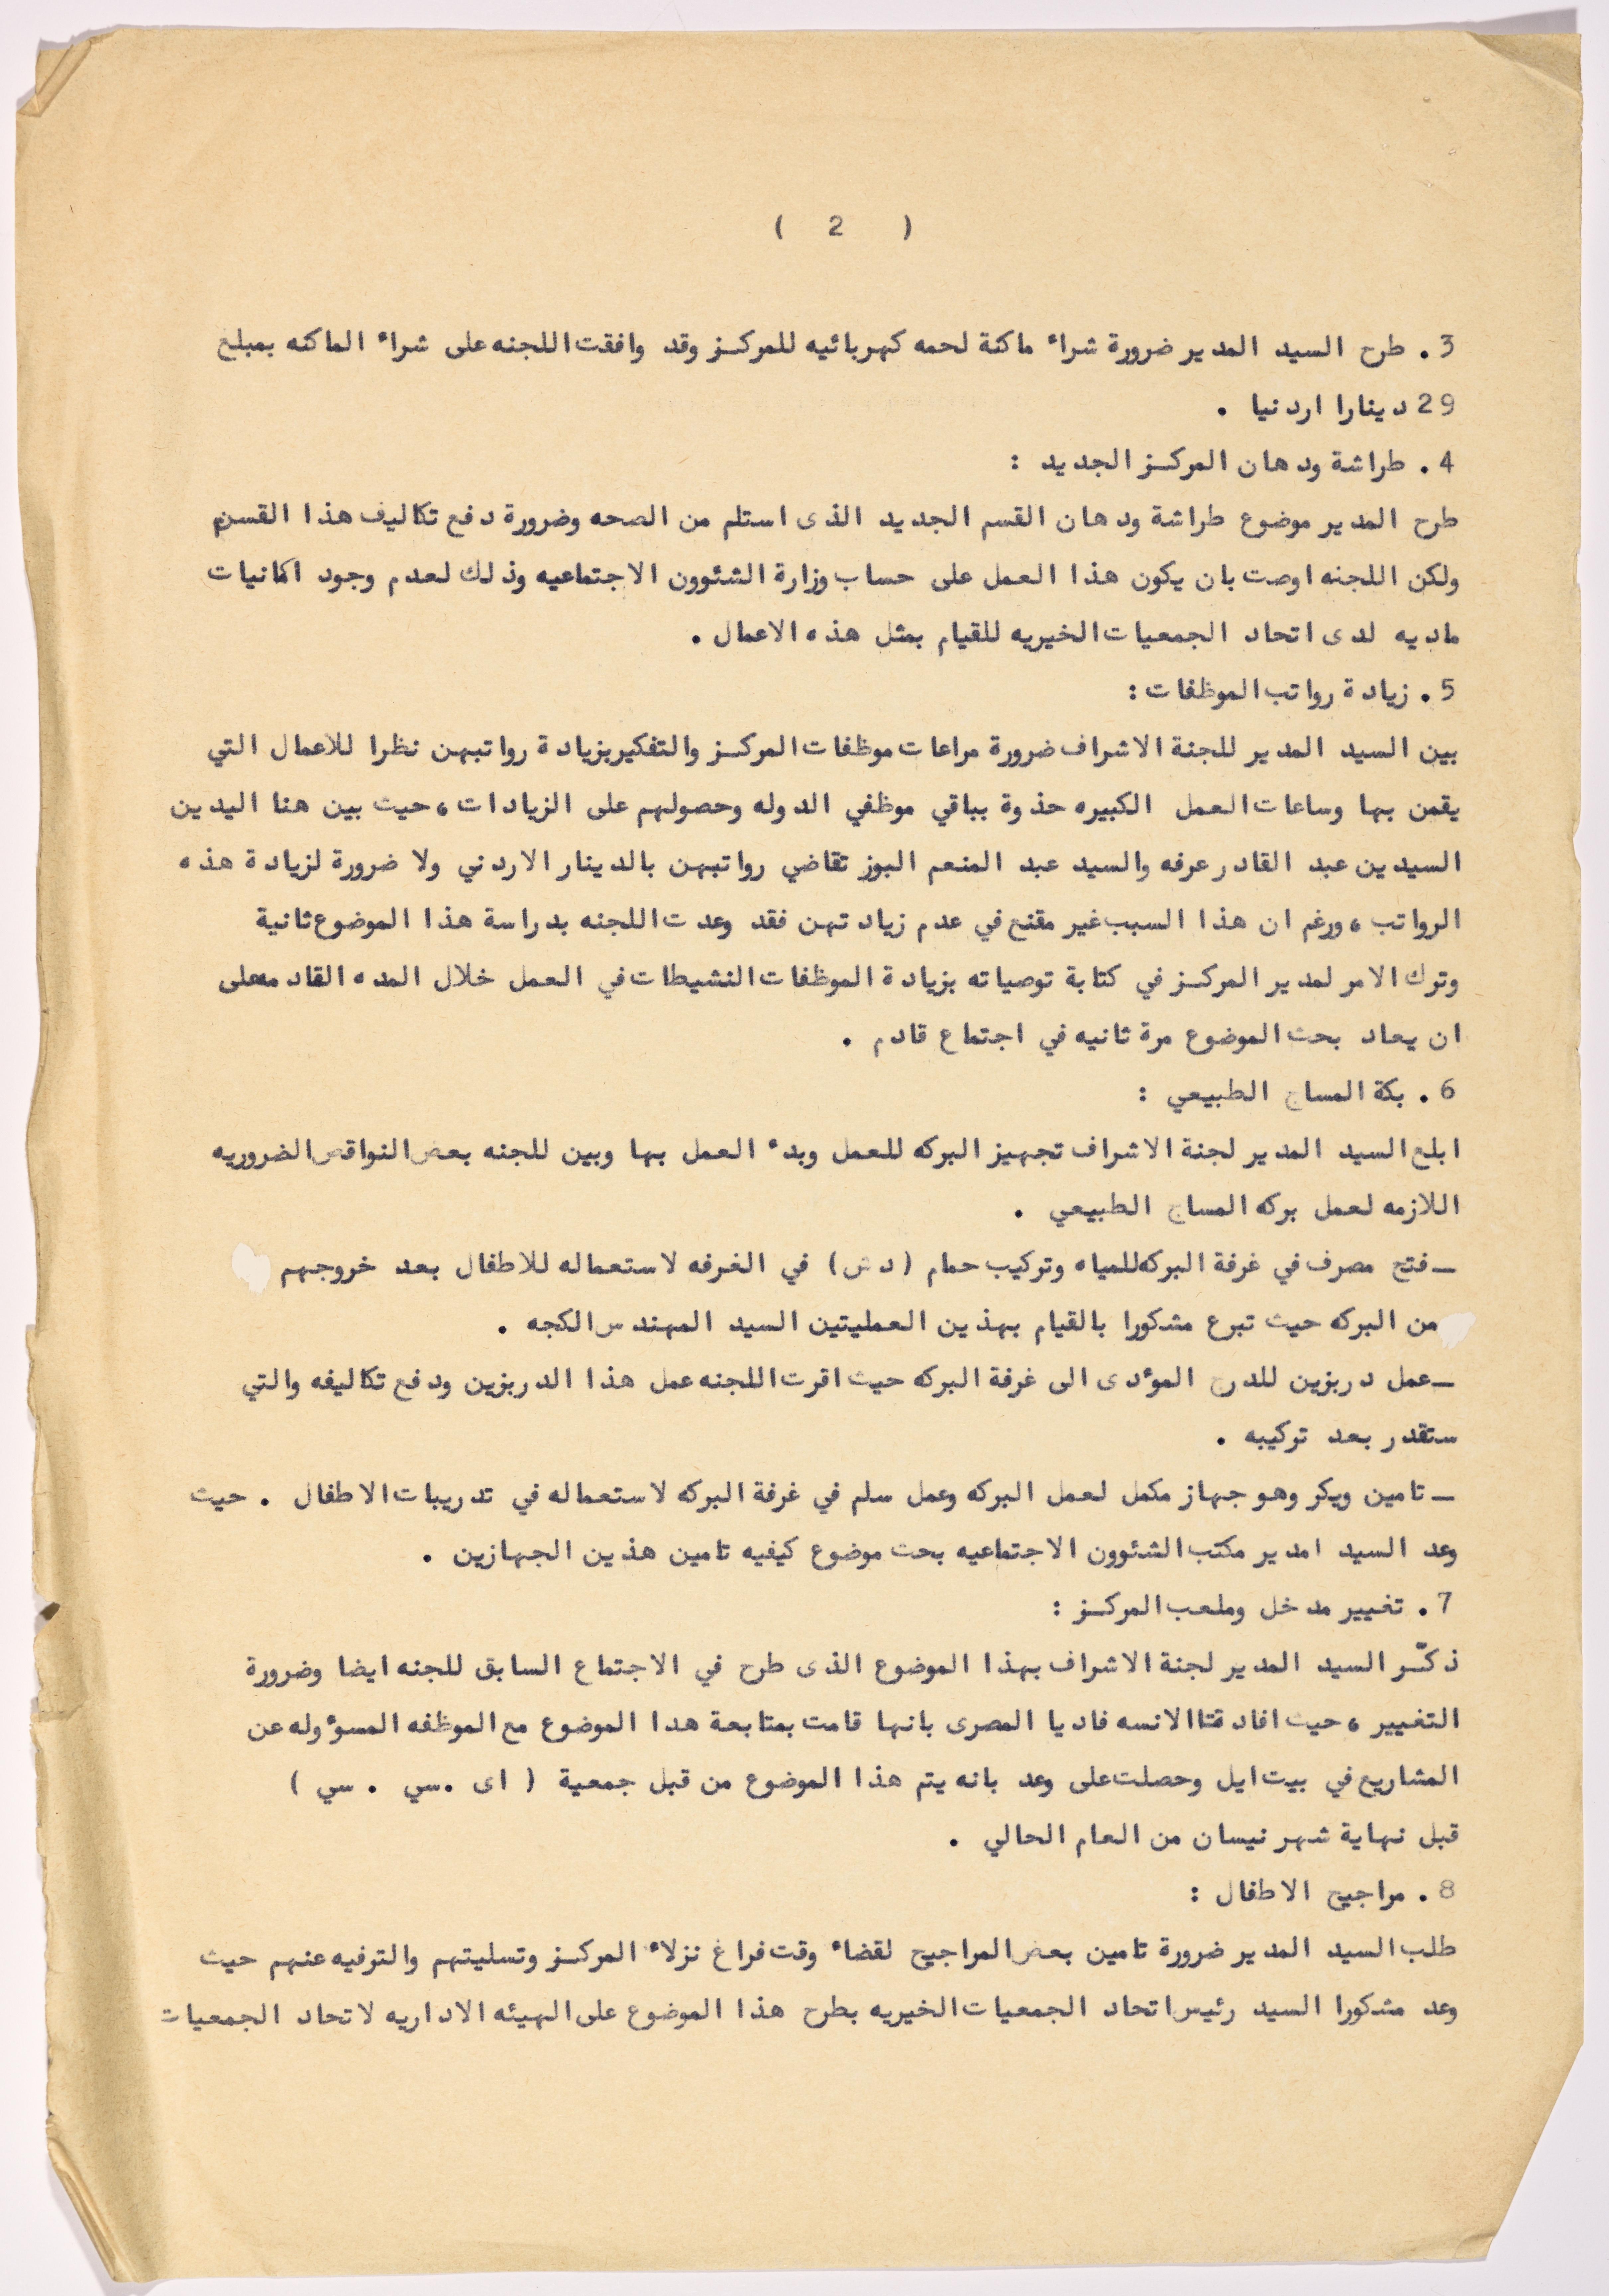 ( 2 )
3 . طرح السيد المدير ضرورة شراء ماكنة لحمه كهربائيه للمركـز وقد وافقت اللجنه على شراء الماكنه بمبلغ
29 دينارا اردنيا .
4 . طراشة ودهان المركـز الجديد :
طرح المدير موضوع طراشة ودهان القسم الجديد الذى استلم من الصحه وضرورة دفع تكاليف هذا القسم
ولكن اللجنه اوصت بان يكون هذا العمل على حساب وزارة الشئوون الاجتماعيه وذلك لعدم وجود امكانيات
ماديه لدى اتحاد الجمعيات الخيريه للقيام بمثل هذه الاعمال .
5 . زيادة رواتب الموظفات :
بين السيد المدير للجنة الاشراف ضرورة مراعات موظفات المركـز والتفكير بزيادة رواتبهن نظرا للاعمال التي
يقمن بها وساعات العمل الكبيره حذوة بباقي موظفي الدوله وحصولهم على الزيادات ، حيث بين هنا اليدين
السيدين عبد القادر عرفه والسيد عبد المنعم البوز تقاضي رواتبهن بالدينار الاردني ولا ضرورة لزيادة هذه
الرواتب ، ورغم ان هذا السبب غير مقنع في عدم زيادتهن فقد وعدت اللجنه بدراسة هذا الموضوع ثانية
وترك الامر لمدير المركـز في كتابة توصياته بزيادة الموظفات النشيطات في العمل خلال المده القادمه على
ان يعاد بحث الموضوع مرة ثانيه في اجتماع قادم .
6 . بكة المساج الطبيعي :
ابلغ السيد المدير لجنة الاشراف تجهيز البركه للعمل وبدء العمل بها وبين للجنه بعض النواقص الضروريه
اللازمه لعمل بركه المساج الطبيعي .
ـ فتح مصرف في غرفة البركه للمياه وتركيب حمام ( دش ) في الغرفه لاستعماله للاطفال بعد خروجهم
من البركه حيث تبرع مشكورا بالقيام بهذين العمليتين السيد المهندس الكجه .
ـ عمل دربزين للدرج المؤدى الى غرفة البركه حيث اقرت اللجنه عمل هذا الدربزين ودفع تكاليفه والتي
ستقدر بعد تركيبه .
ـ تامين ويكر وهو جهاز مكمل لعمل البركه وعمل سلم في غرفة البركه لاستعماله في تدريبات الاطفال . حيث
وعد السيد امدير مكتب الشئوون الاجتماعيه بحث موضوع كيفيه تامين هذين الجهازين .
7 . تغيير مدخل وملعب المركـز :
ذكّـر السيد المدير لجنة الاشراف بهذا الموضوع الذى طرح في الاجتماع السابق للجنه ايضا وضرورة
التغيير ، حيث افادتنا الانسه فاديا المصرى بانها قامت بمتابعة هدا الموضوع مع الموظفه المسؤوله عن
المشاريع في بيت ايل وحصلت على وعد بانه يتم هذا الموضوع من قبل جمعية ( اى .سي . سي )
قبل نهاية شهر نيسان من العام الحالي .
8 . مراجيح الاطفال :
طلب السيد المدير ضرورة تامين بعض المراجيح لقضاء وقت فراغ نزلاء المركـز وتسليتهم والترفيه عنهم حيث
وعد مشكورا السيد رئيس اتحاد الجمعيات الخيريه بطرح هذا الموضوع على الهيئه الاداريه لاتحاد الجمعيات